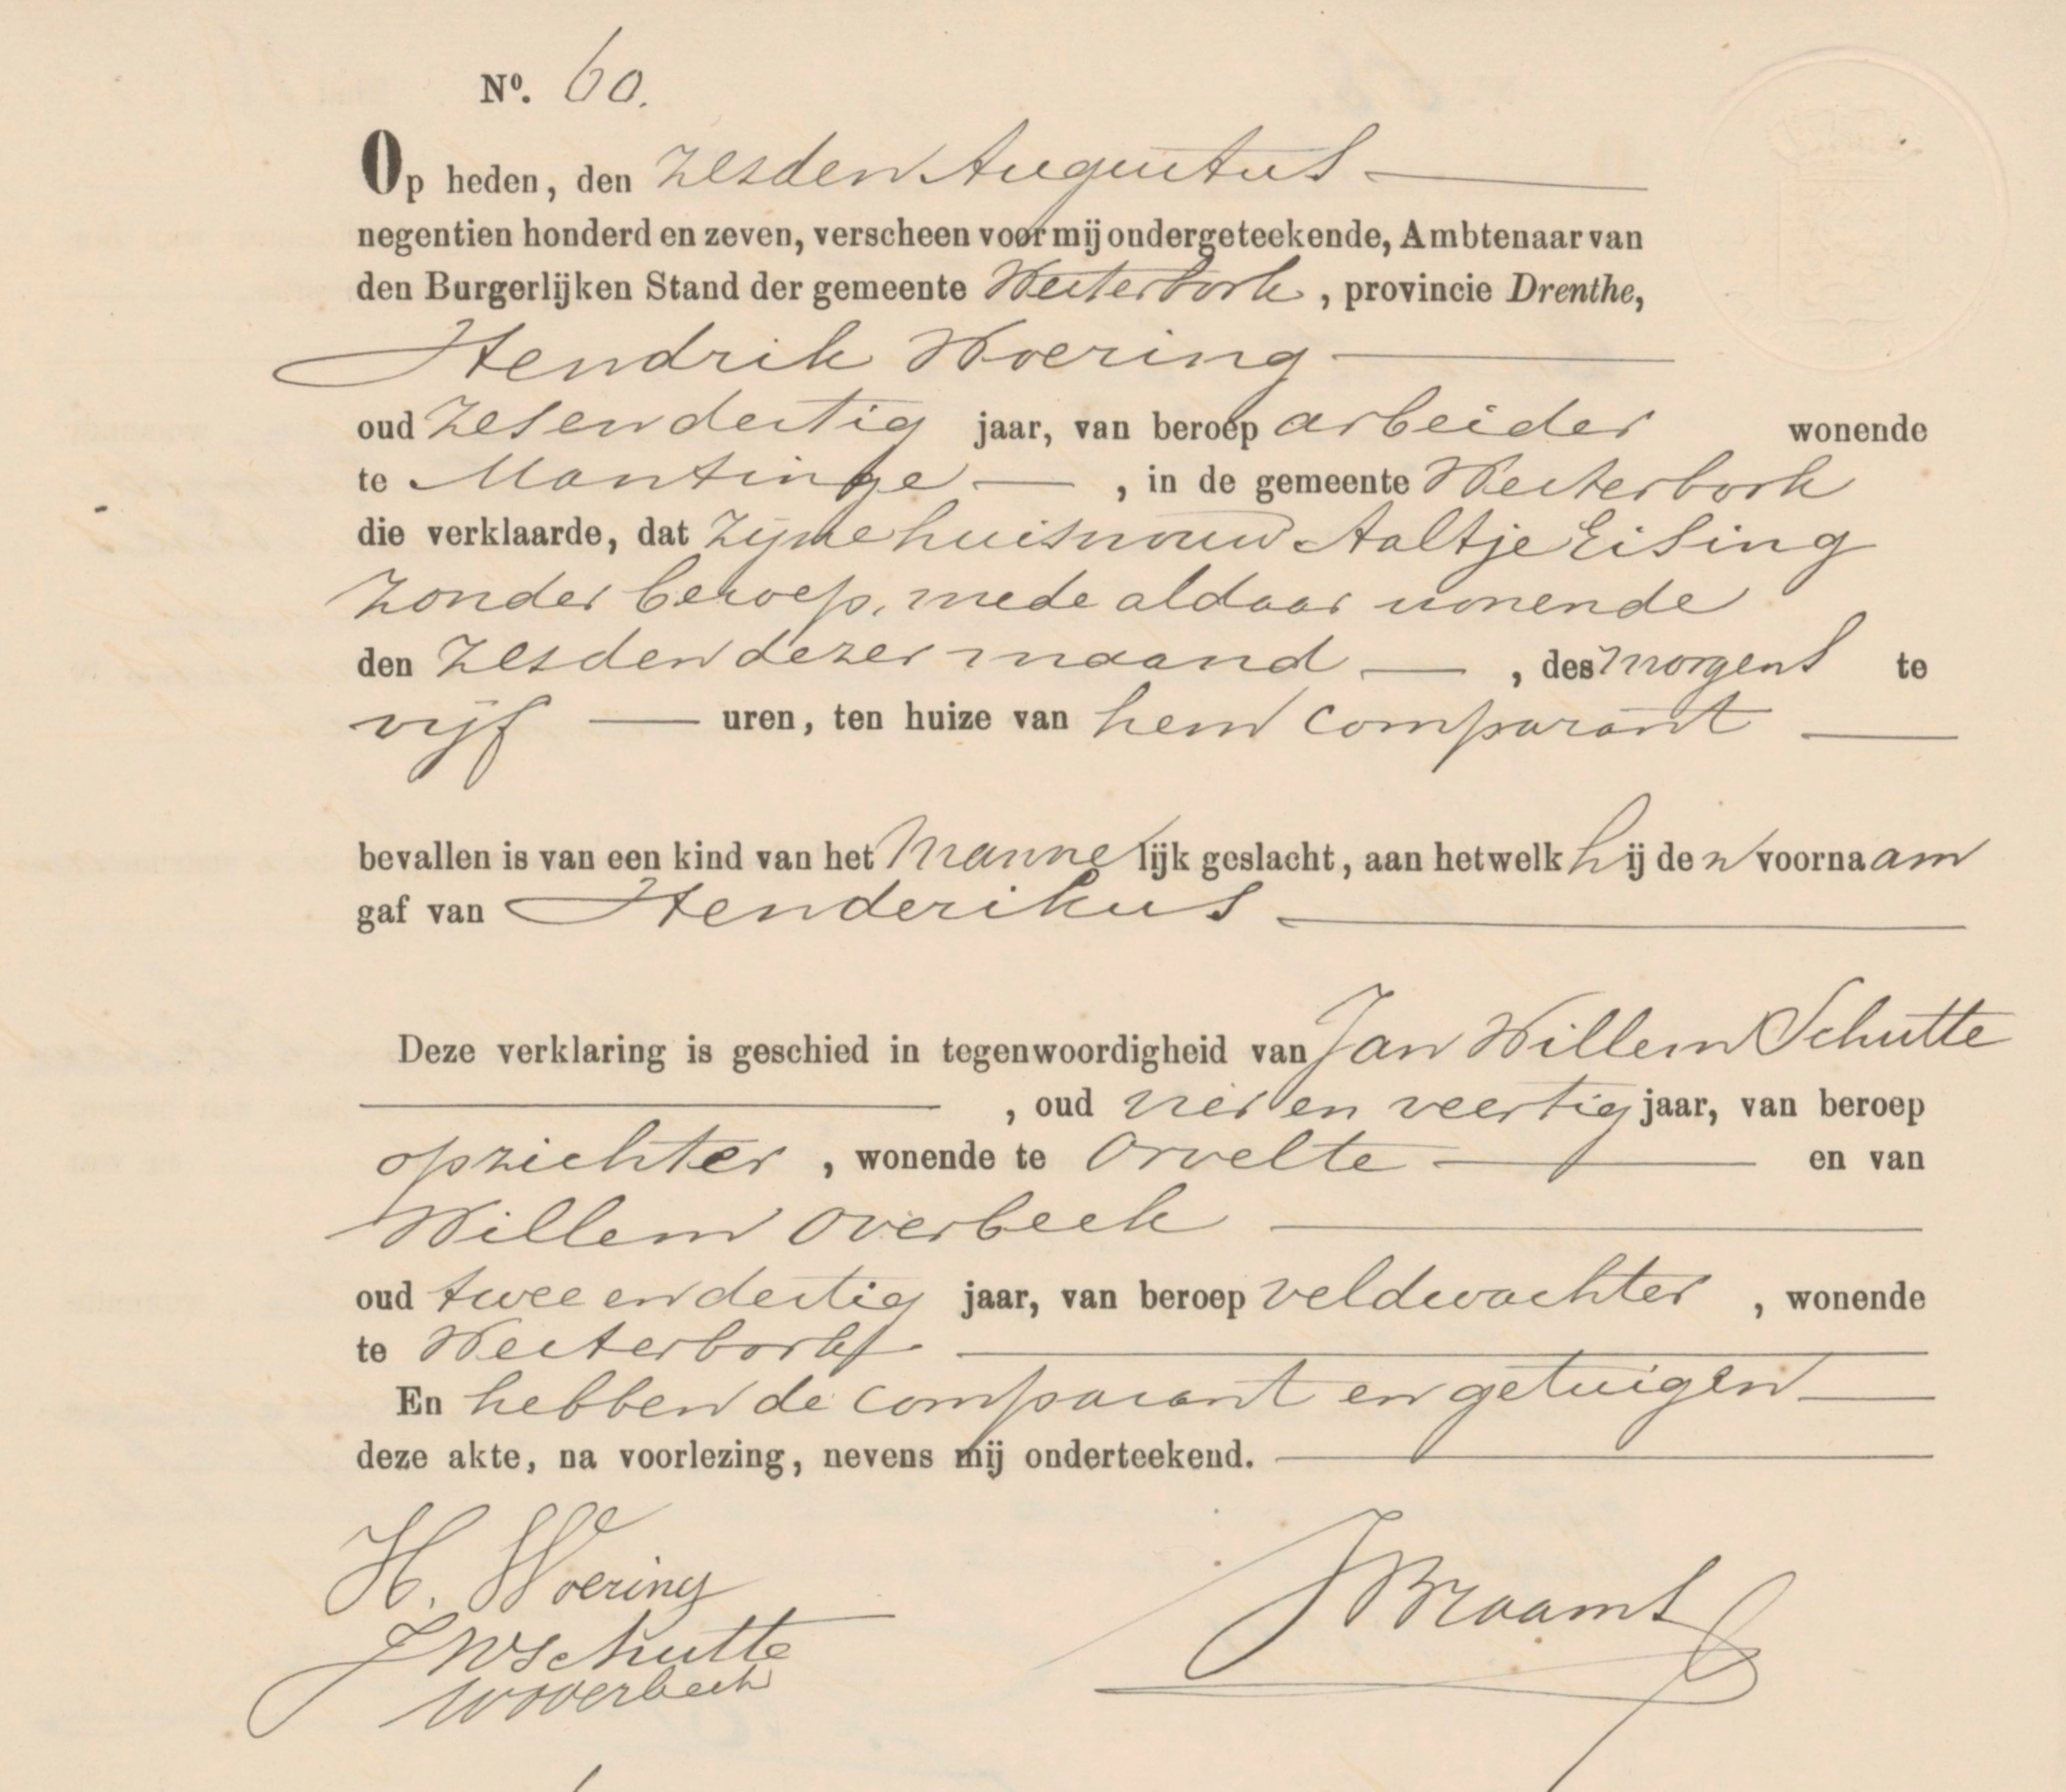 Nº. 60.
Op heden, den zesden Augustus
negentien honderd en zeven, verscheen voor mij ondergeteekende, Ambtenaar van
den Burgerlijken Stand der gemeente Westerbork, provincie Drenthe,
Hendrik Woering
oud zesendertig jaar, van beroep arbeider wonende
te Mantinge, in de gemeente Westerbork
die verklaarde, dat zijne huisvrouw Aaltje Eising
zonder beroep, mede aldaar wonende
den zesden dezer maand, des morgens te
vijf uren, ten huize van hem comparant
bevallen is van een kind van het mannelijk geslacht, aan hetwelk hij den voornaam
gaf van Henderikus
Deze verklaring is geschied in tegenwoordigheid van Jan Willem Schutte
, oud vier en veertig jaar, van beroep
opzichter, wonende te Orvelte en van
Willem Overbeek
oud twee en dertig jaar, van beroep veldwachter, wonende
te Westerbork
En hebben de comparant en getuigen
deze akte, na voorlezing, nevens mij onderteekend.
H. Woering
JWSchutte
WOverbeek